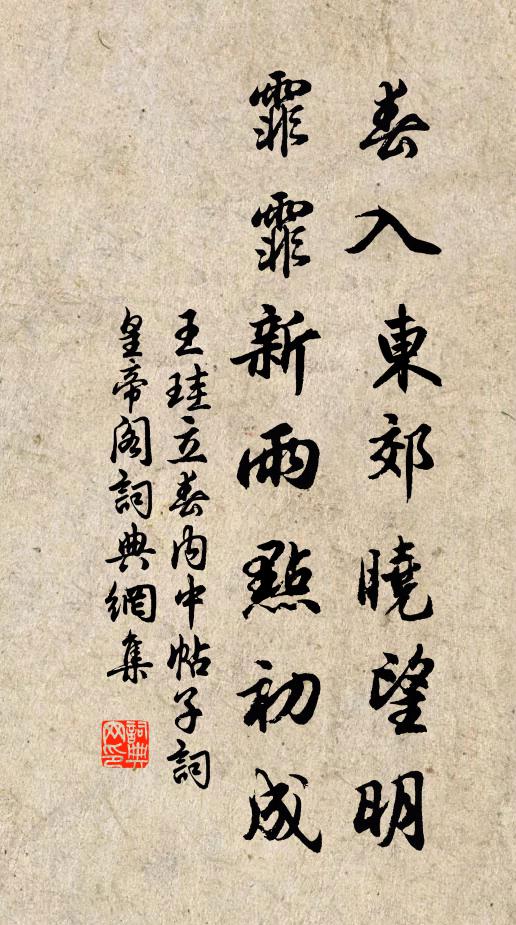 春入東郊曉望明
霏霏新雨點初成
王珪立春內中帖子詞
皇帝閣詞典網集
詞典
网印